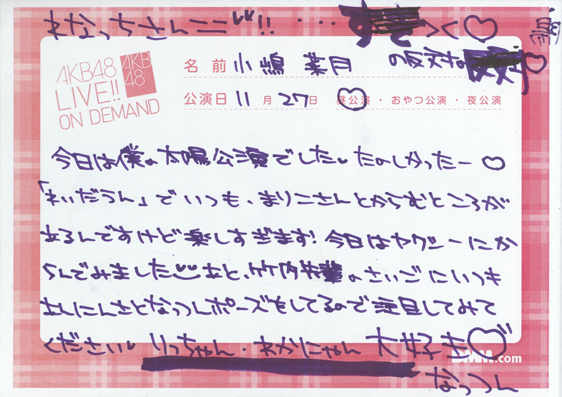 わなっちさんニニ!! ... くく♡
AKB48
LIVE!!
ON DEMAND
AKB
48
名前 小嶋 菜月 の反対の
公演日 11 月 27 日 昼公演・おやつ公演・夜公演
今日は僕の太陽公演でした たのしかったー♡
「れいだうん」でいつも、まりこさんとからむところが
あるんですけど楽しすぎます!今日はヤグシーにか
らんでみました あと、竹内先輩のさいごにいつも
あんにんさとなっつんポーズをしてるので注目してみて
ください りっちゃん・わかにゃん 大好き♡
DMM.com
なっつん